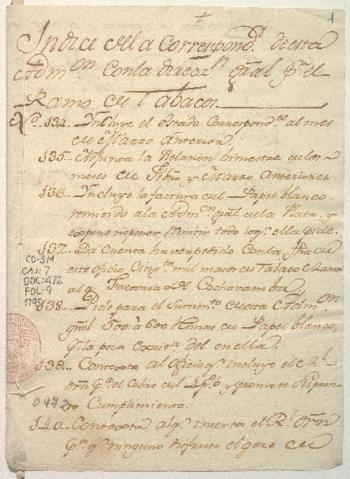 1
Indice de la correspond.ª de esta
Adm.on con la direcc.n gral p.r el
Ramo de Tabacos
N.º 134.. Incluye el estado Correspond.te al mes
de Marzo anterior
135.. Adjunta la Relacion bimestre de los
meses de Febr.o y Marzo Anteriores
136.. Incluye la factura del Papel blanco
remitido a la Adm.on gral de la Plata, y
expone no poder remitir todo lo q.e ella pide.
137.. Da Cuenta haver pedido con la fha
este oficio mil mazos de Tabaco
a la Factoria de Cochavamba
138.. Pide para el Surtim.to de esta Adm.on
gral 500 a 600 Resmas de Papel blanco,
p.r la poca existª del en ella.
139.. Contexta al oficio q.e incluye el
p.a el Cobro del y promete
Cumplimiento.
140.. Contexta al q.e inserta el R.l orn
p.a q.e ninguno disfrute el goze de
CO-SM
CAJ: 7
DOC: 472
FOL: 9
1795
0472